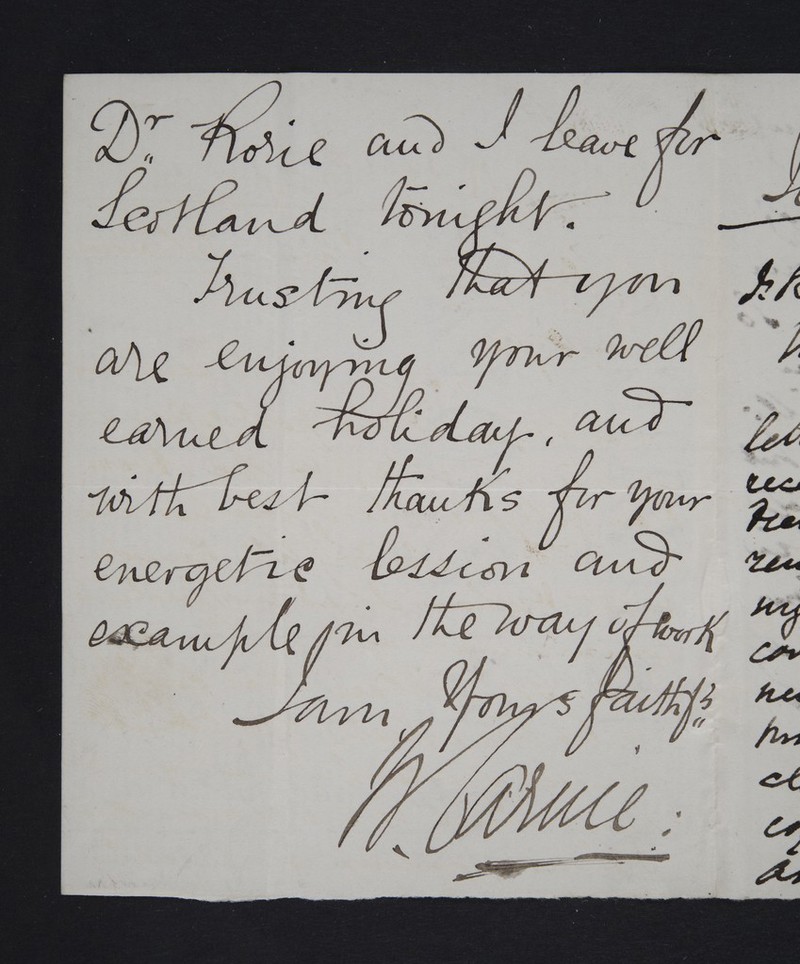 Dr. Rosie and I leave for
Scotland tonight.
Trusting that you
are enjoying your well
earned holiday, and
with best thanks for your
energetic lession and
example in the way of work
I am Yours faithfys
W. Carnie